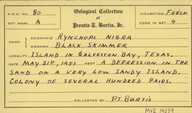 A.O.U. NO. 80 Oological Collection COLLECTION Fresh
SET MARK A OF EGGS IN SET 4
Benita T. Burtis, Jr.
NAME Rynchops nigra
Black Skimmer
LOCALITY Island in Galveston Bay, Texas.
DATE May 21st, 1931 NEST A depression in the
sand on a very low sandy island.
Colony of several hundred pairs.
COLLECTED BY P.T. Burtis